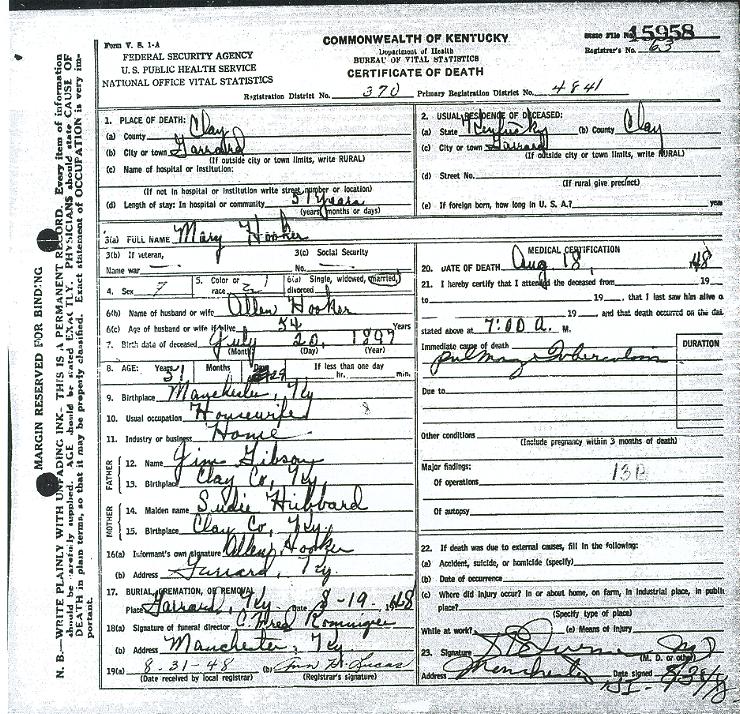 COMMONWEALTH OF KENTUCKY
State File No. 15958
Form V. S. 1-A
Department of Health
Registrar's No. 63
FEDERAL SECURITY AGENCY
BUREAU OF VITAL STATISTICS
U. S. PUBLIC HEALTH SERVICE
CERTIFICATE OF DEATH
NATIONAL OFFICE VITAL STATISTICS
Registration District No. 370 Primary Registration District No. 4841
MARGIN RESERVED FOR BINDING
N. B.—WRITE PLAINLY WITH UNFADING INK—THIS IS A PERMANENT RECORD. Every item of information
should be carefully supplied. AGE should be stated EXACTLY. PHYSICIANS should state CAUSE OF
DEATH in plain terms, so that it may be properly classified. Exact statement of OCCUPATION is very im-
portant.
1. PLACE OF DEATH:
(a) County Clay
(b) City or town Garrard
(If outside city or town limits, write RURAL)
(c) Name of hospital or institution:
(If not in hospital or institution write street number or location)
(d) Length of stay: In hospital or community 51 years
(years, months or days)
2. USUAL RESIDENCE OF DECEASED:
(a) State Kentucky (b) County Clay
(c) City or town Garrard
(If outside city or town limits, write RURAL)
(d) Street No.
(If rural give precinct)
(e) If foreign born, how long in U. S. A.? years
3(a) FULL NAME Mary Hooker
3(b) If veteran, 3(c) Social Security
Name war — No. —
4. Sex 5. Color or race 6(a) Single, widowed, married, divorced
6(b) Name of husband or wife Allen Hooker
6(c) Age of husband or wife if alive 54 Years
7. Birth date of deceased July 20, 1897
(Month) (Day) (Year)
8. AGE: Years Months Days If less than one day
51 29 hr. min.
9. Birthplace Manchester, Ky
10. Usual occupation Housewife
11. Industry or business Home
FATHER
12. Name Jim Gibson
13. Birthplace Clay Co, Ky.
MOTHER
14. Maiden name Sudie Hubbard
15. Birthplace Clay Co, Ky.
16(a) Informant's own signature Allen Hooker
(b) Address Garrard, Ky.
17. BURIAL, CREMATION, OR REMOVAL
Place Garrard, Ky Date 8-19- 1948
18(a) Signature of funeral director C. Fred Rominger
(b) Address Manchester, Ky.
19(a) 8-31-48 (b) Lucas
(Date received by local registrar) (Registrar's signature)
MEDICAL CERTIFICATION
20. DATE OF DEATH Aug 18, 48
21. I hereby certify that I attended the deceased from 19
to 19 , that I last saw him alive o
19 , and that death occurred on the dat
stated above at 7:00 A. M.
Immediate cause of death DURATION
pulmonary Tuberculosis
Due to
Other conditions
(Include pregnancy within 3 months of death)
Major findings: 13B
Of operations
Of autopsy
22. If death was due to external causes, fill in the following:
(a) Accident, suicide, or homicide (specify)
(b) Date of occurrence
(c) Where did injury occur? In or about home, on farm, in industrial place, in public
place?
(Specify type of place)
While at work? (e) Means of injury
23. Signature
(M. D. or other)
Address Manchester Date signed